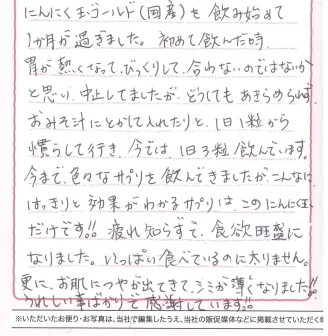 にんにく玉ゴールド(国産)を飲み始めて
1か月が過ぎました。初めて飲んだ時、
胃が熱くなって、びっくりして、合わないのではないか
と思い、中止してましたが、どうしてもあきらめられず、
おみそ汁にとかして入れたりと、1日1粒から
慣らして行き、今では、1日3粒飲んでいます。
今まで、色々なサプリを飲んできましたが、こんなに
はっきりと効果がわかるサプリは、このにんにく玉
だけです!! 疲れ知らずで、食欲旺盛に
なりました。いっぱい食べているのに太りません。
更に、お肌につやが出てきて、シミが薄くなりました!!
うれしい事ばかりで感謝しています!!
※いただいたお便り・お写真は、当社で編集したうえ、当社の販促媒体などに掲載させていただく